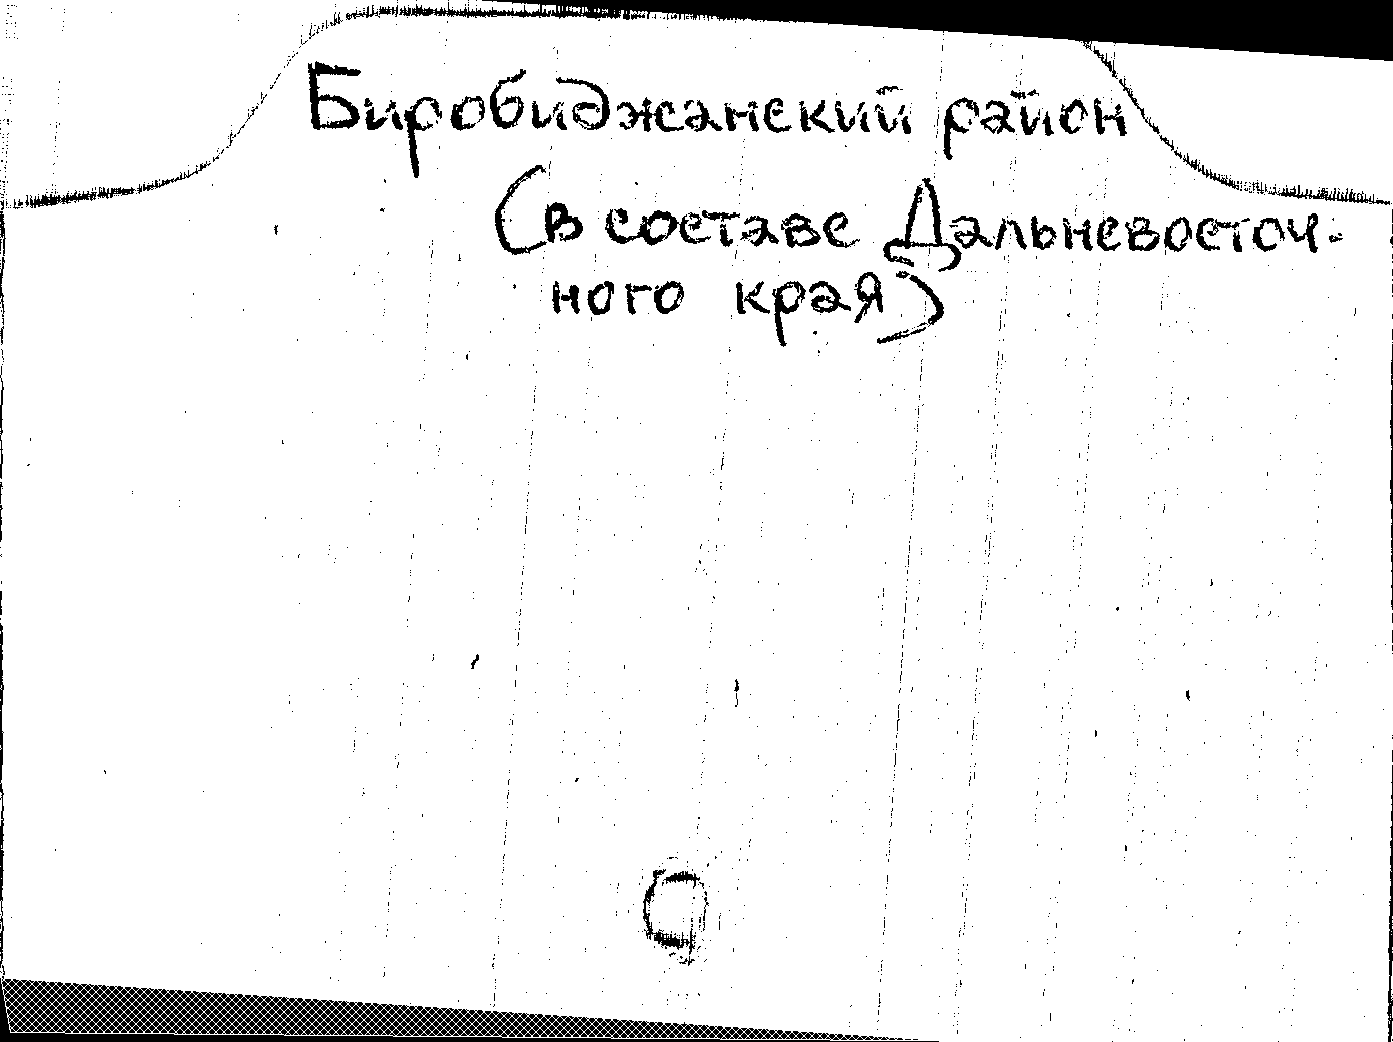 Биробиджанский район
(в составе Дальневосточ-
ного края)